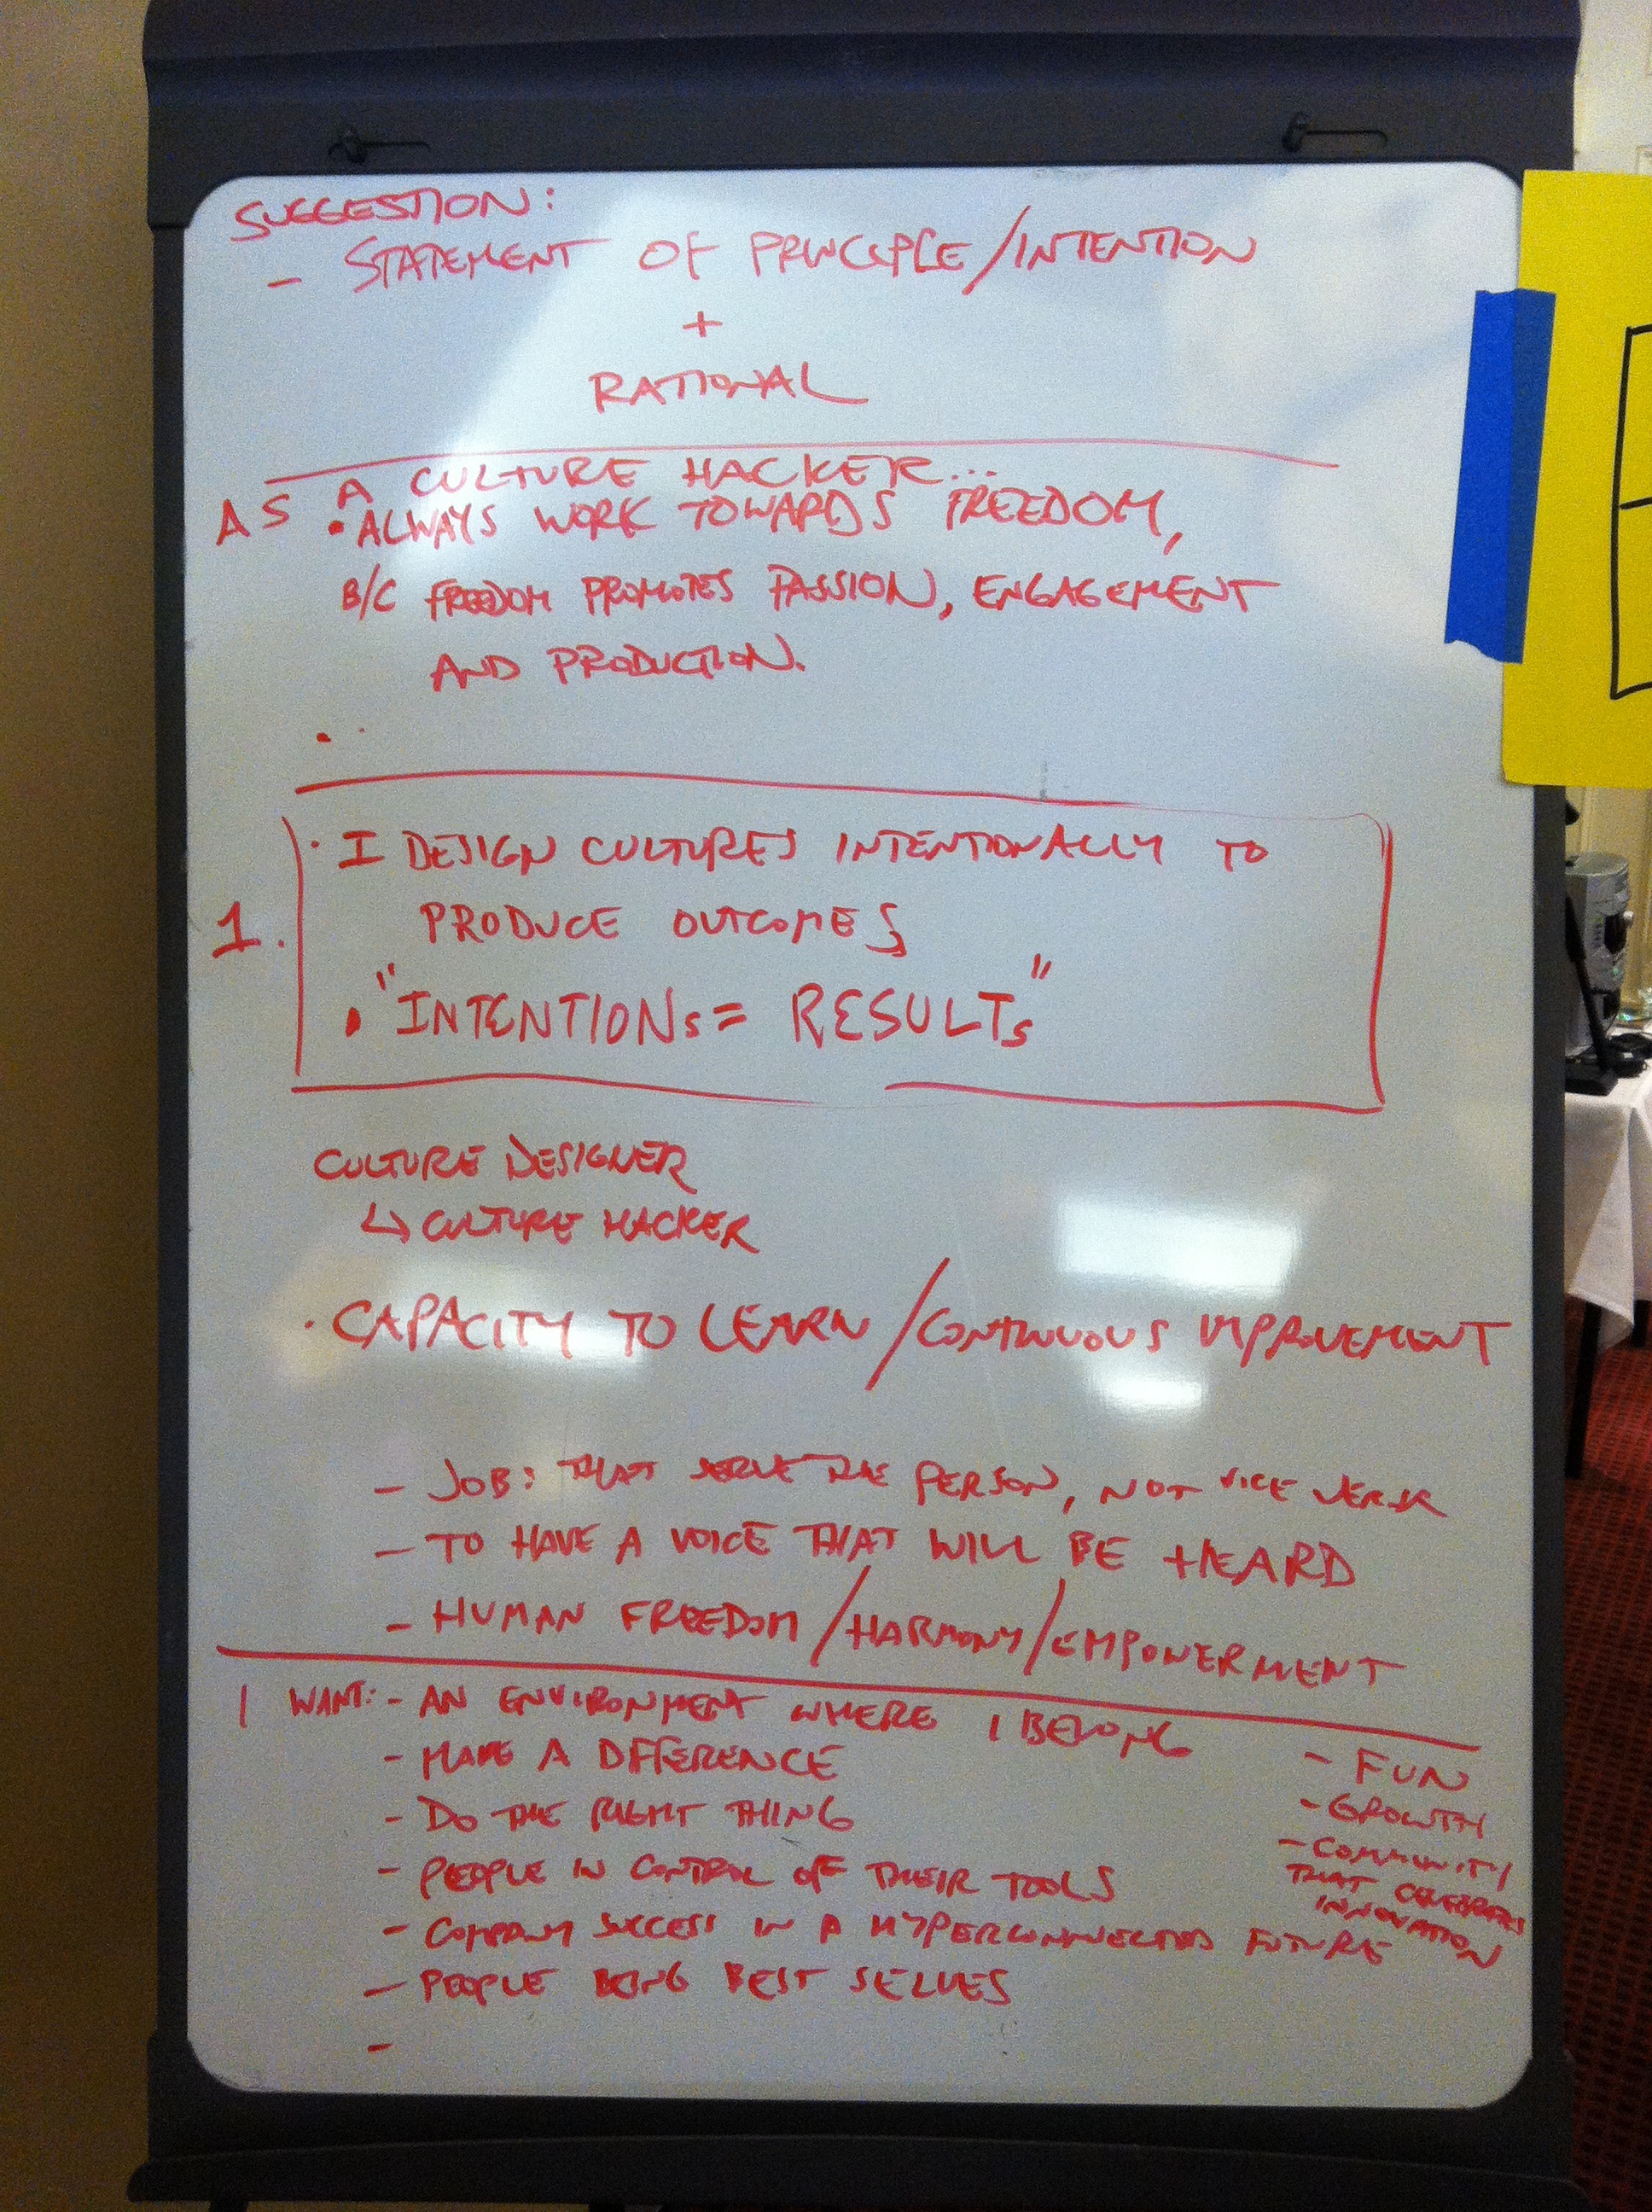 SUGGESTION:
- STATEMENT OF PRINCIPLE/INTENTION
+
RATIONAL
AS A CULTURE HACKER...
• ALWAYS WORK TOWARDS FREEDOM,
B/C FREEDOM PROMOTES PASSION, ENGAGEMENT
AND PRODUCTION.
•
1.
• I DESIGN CULTURES INTENTIONALLY TO
PRODUCE OUTCOMES
• "INTENTIONS = RESULTS"
CULTURE DESIGNER
↳ CULTURE HACKER
• CAPACITY TO LEARN / CONTINUOUS IMPROVEMENT
- JOB: THAT SERVE THE PERSON, NOT VICE VERSA
- TO HAVE A VOICE THAT WILL BE HEARD
- HUMAN FREEDOM / HARMONY / EMPOWERMENT
I WANT: - AN ENVIRONMENT WHERE I BELONG
- MAKE A DIFFERENCE
- DO THE RIGHT THING
- PEOPLE IN CONTROL OF THEIR TOOLS
- COMPANY SUCCESS IN A HYPERCONNECTED FUTURE
- PEOPLE BEING BEST SELVES
-
- FUN
- GROWTH
- COMMUNITY
THAT CELEBRATES
INNOVATION